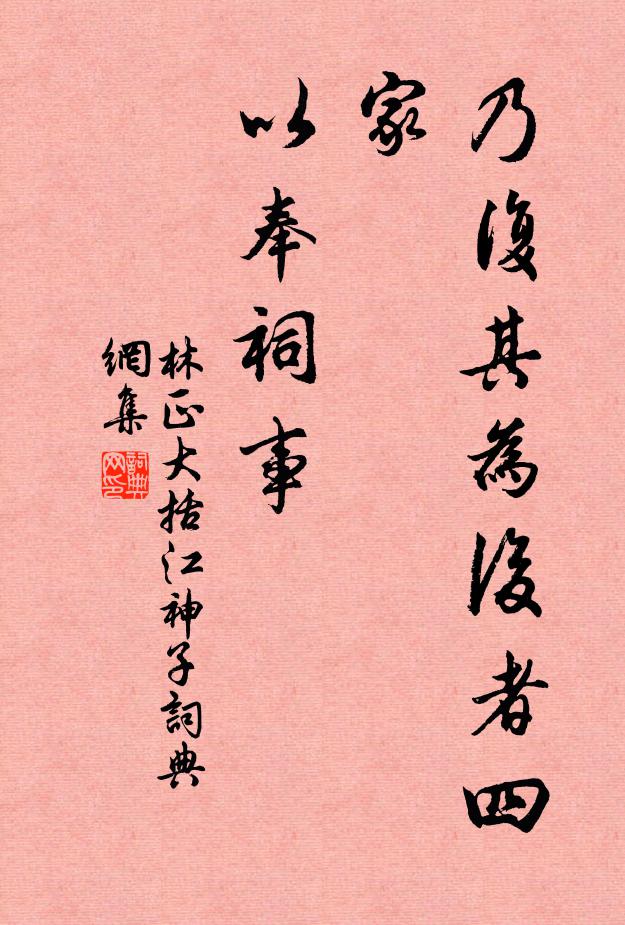 乃復其為後者四
家
以奉祠事
林正大括江神子詞典
網集
詞典網印